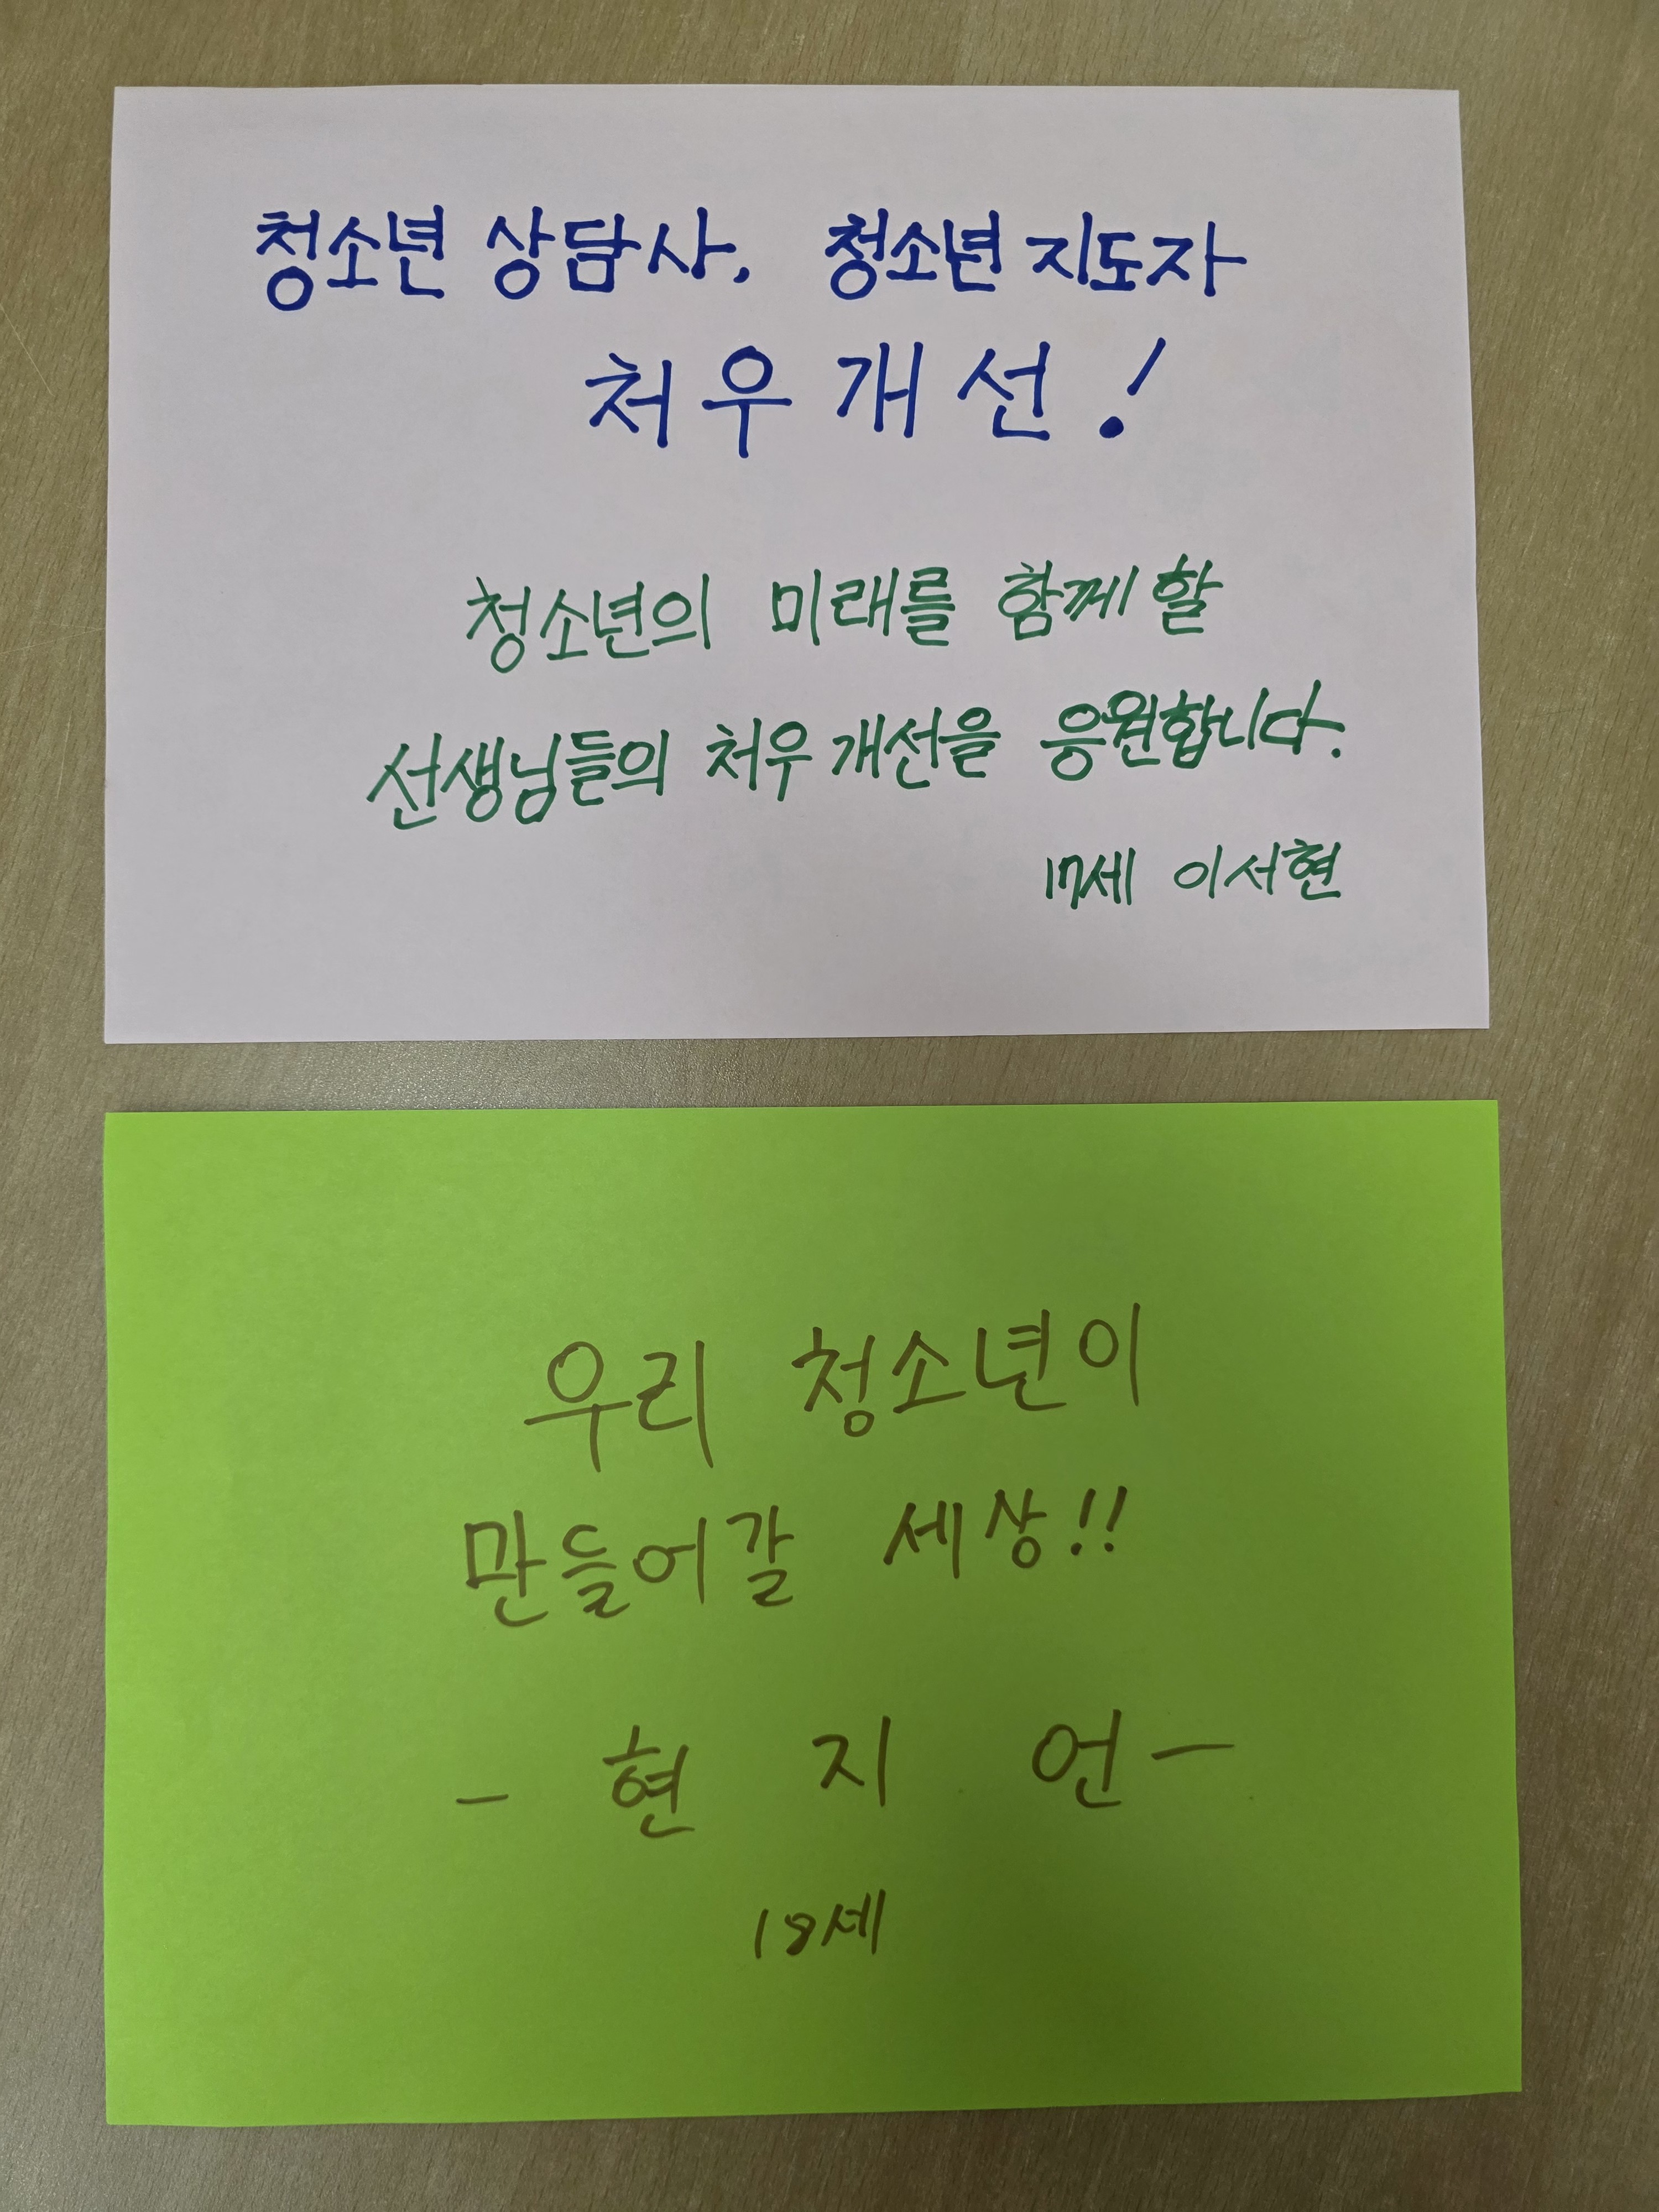 청소년 상담사, 청소년 지도자
처우개선!
청소년의 미래를 함께 할
선생님들의 처우개선을 응원합니다.
17세 이서현
우리 청소년이
만들어갈 세상!!
- 현 지 언 -
18세